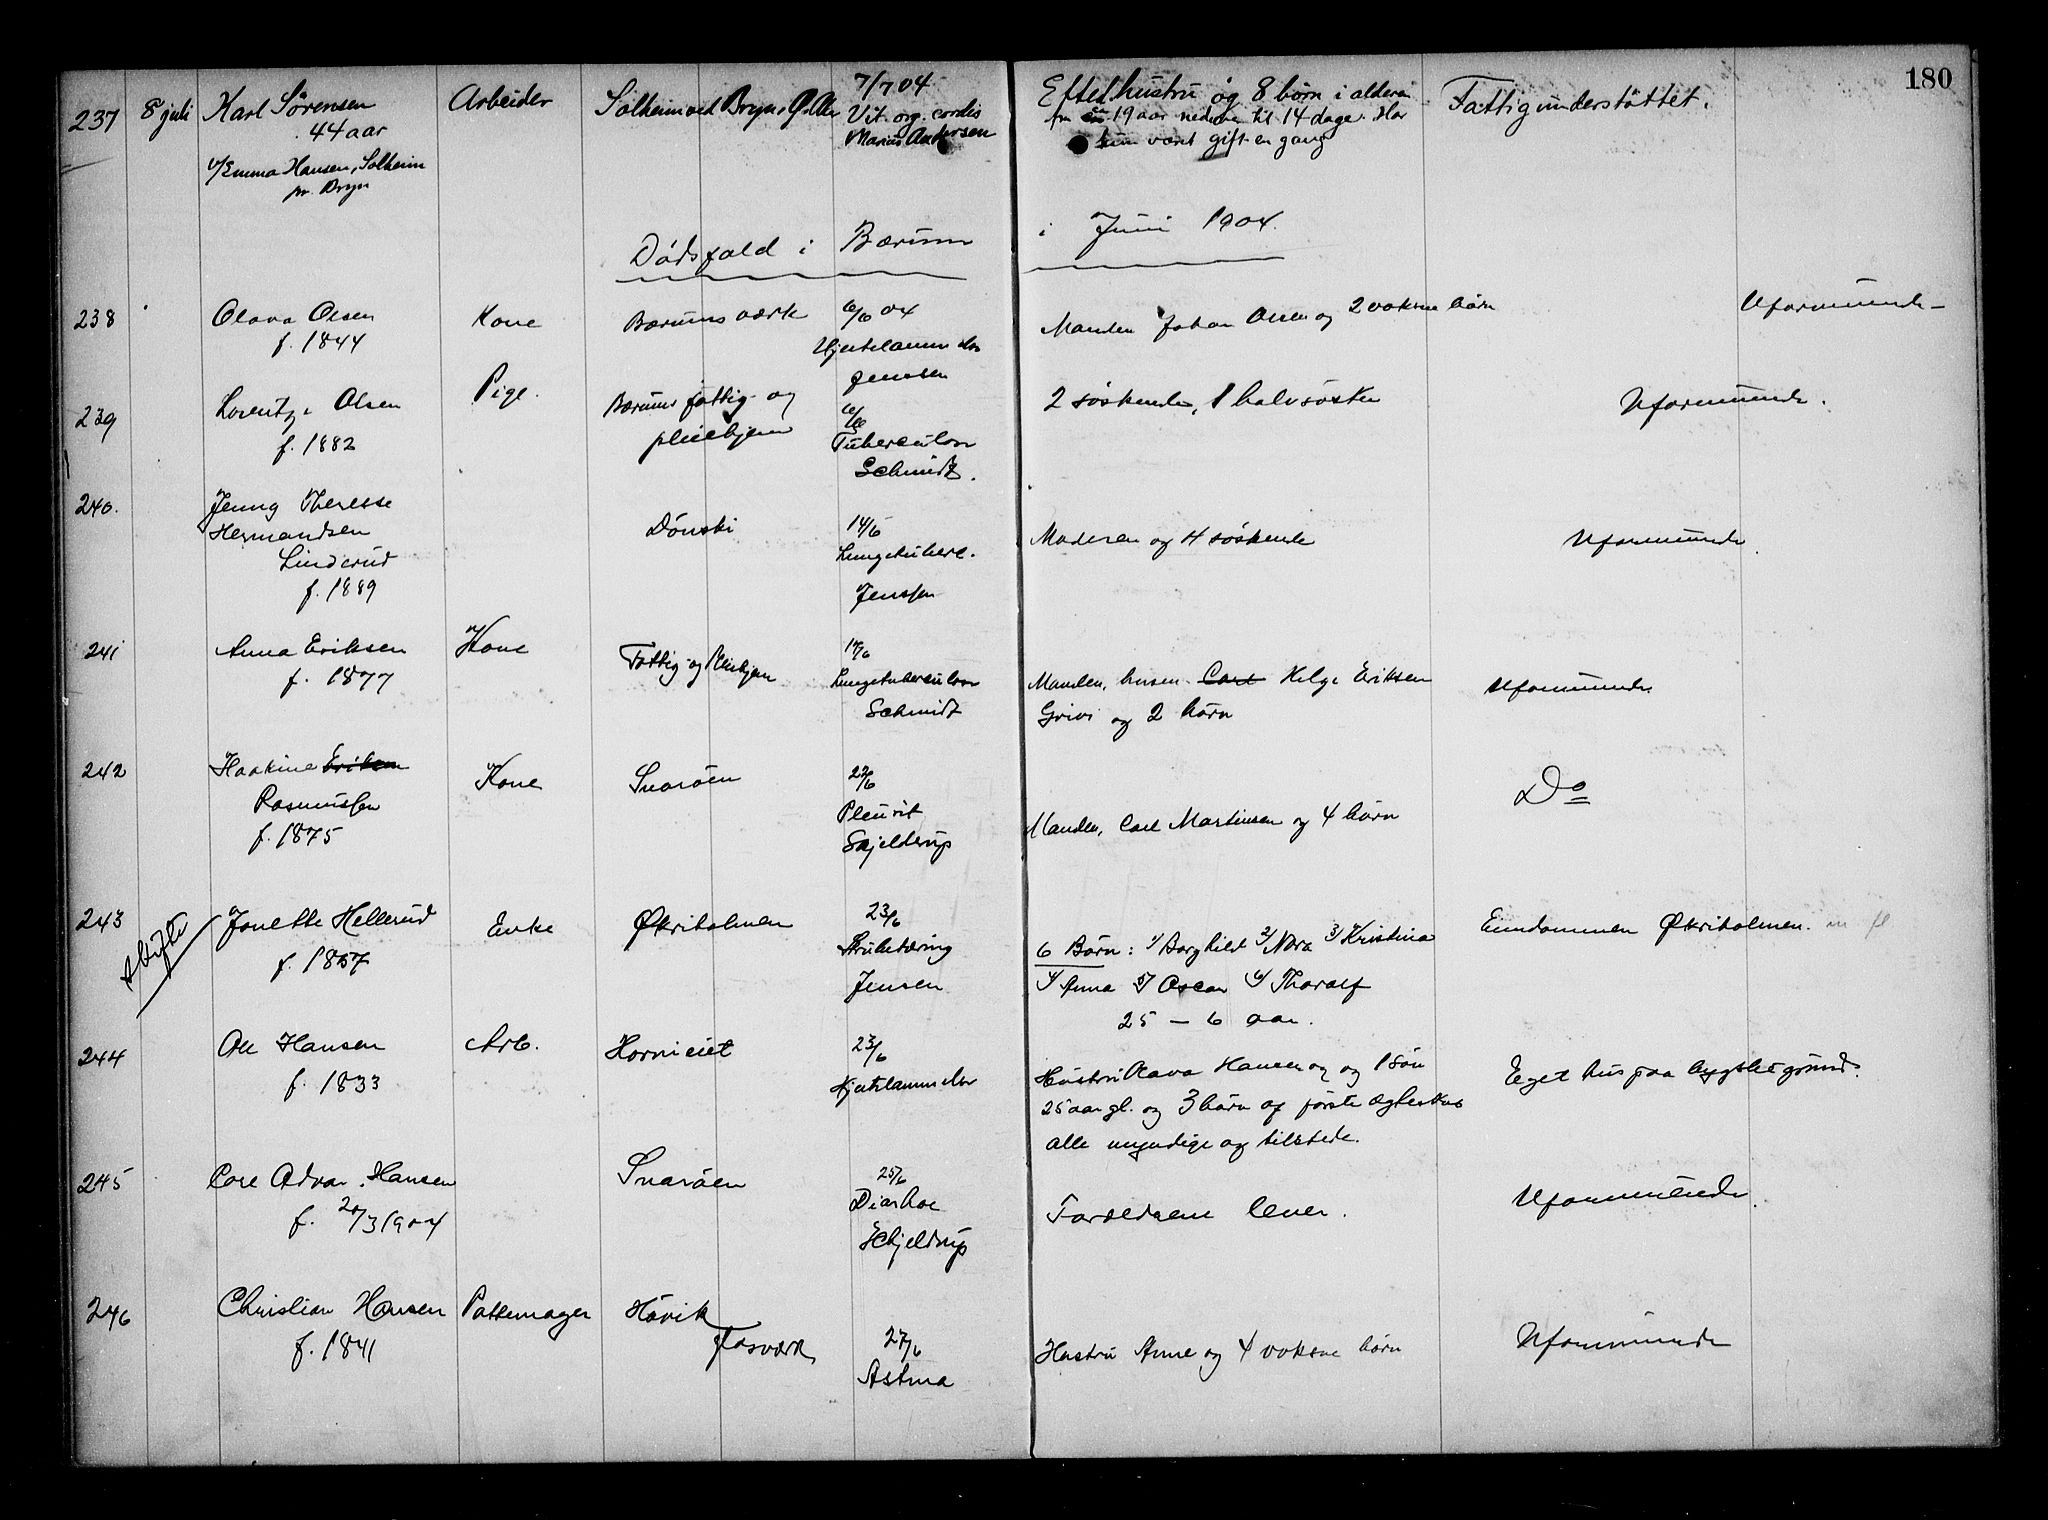 180
237 8 juli Karl Sørensen Arbeider Solheim ved Bryn, Ø. Aker 7/7 04 Efterl. hustru og 8 børn i alderen Fattigunderstøttet.
44 aar Vit. org. cordis fra 19 aar nedover til 14 dage. Har
Marius Andersen kun været gift en gang
v/ Emma Hansen, Solheim
pr. Bryn
Dødsfald i Bærum i Juni 1904.
238 Olava Olsen Kone Bærums værk 6/6 04 Manden Johan Olsen og 2 voksne børn Uformuende
f. 1844 Hjertelammelse
Jenssen
239 Lorentze Olsen Pige. Bærums fattig- og 2 søskende, 1 halvsøster Uformuende.
f. 1882 pleiehjem Tuberculose
Schmidt.
240. Jenny Theresse Dønski 14/6 Moderen og 4 søskende Uformuende
Hermandsen Lungetuberc.
Linderud
f. 1889 Jenssen
241 Anna Eriksen Kone Fattig- og Pleiehjem 17/6 Manden, Carl Helge Eriksen Uformuende
f. 1877 Lungetuberculose
Schmidt og 2 børn
242 Haakine Eriksen Kone Snarøen 22/6 Do
Rasmussen Pleurit Manden, Carl Martinsen og 4 børn
f. 1875 Skjelderup
243 Jonette Hellerud Enke Økriholmen 23/6 6 Børn: 1/ Borghild 2/ Nora 3/ Kristina Eiendommen Økriholmen. m fl
f. 1857 Strubetæring 4/ Anna 5/ Oscar 6/ Thoralf
Jensen 25 – 6 aar.
244 Ole Hansen Arb. Hornieiet 23/6 Hustru Olava Hansen og 1 søn Eget hus paa bygslet grund.
f. 1833 Hjertelammelse 25 aar gl. og 3 børn af første ægteskab
alle myndige og tilstede.
245 Carl Advar Hansen Snarøen 25/6 Forældrene lever. Uformuende
f. 20/3 1904 Diarhoe
Schjeldrup
246 Christian Hansen Pottemager Høvik 27/6 Hustru Anne og 4 voksne børn Uformuende
f. 1841 Glasværk
Astma